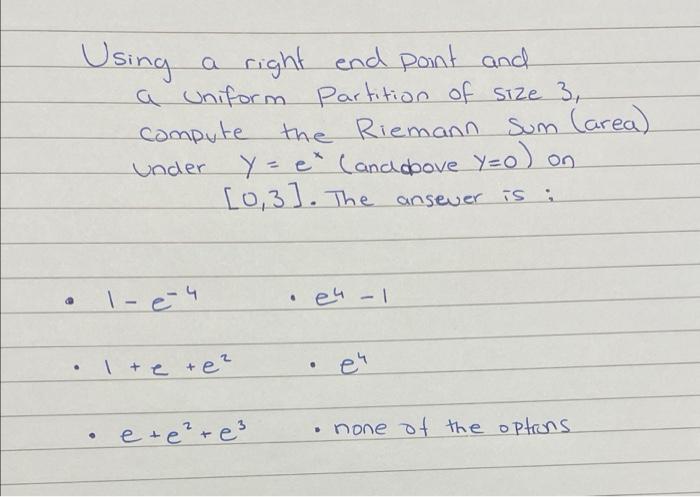 Using a right end point and
a uniform Partition of size 3,
compute the Riemann Sum (area)
under y = eˣ (and above y=0) on
[0,3]. The ansewer is :
• 1 - e⁻⁴ • e⁴ - 1
• 1 + e + e² • e⁴
• e + e² + e³ • none of the options